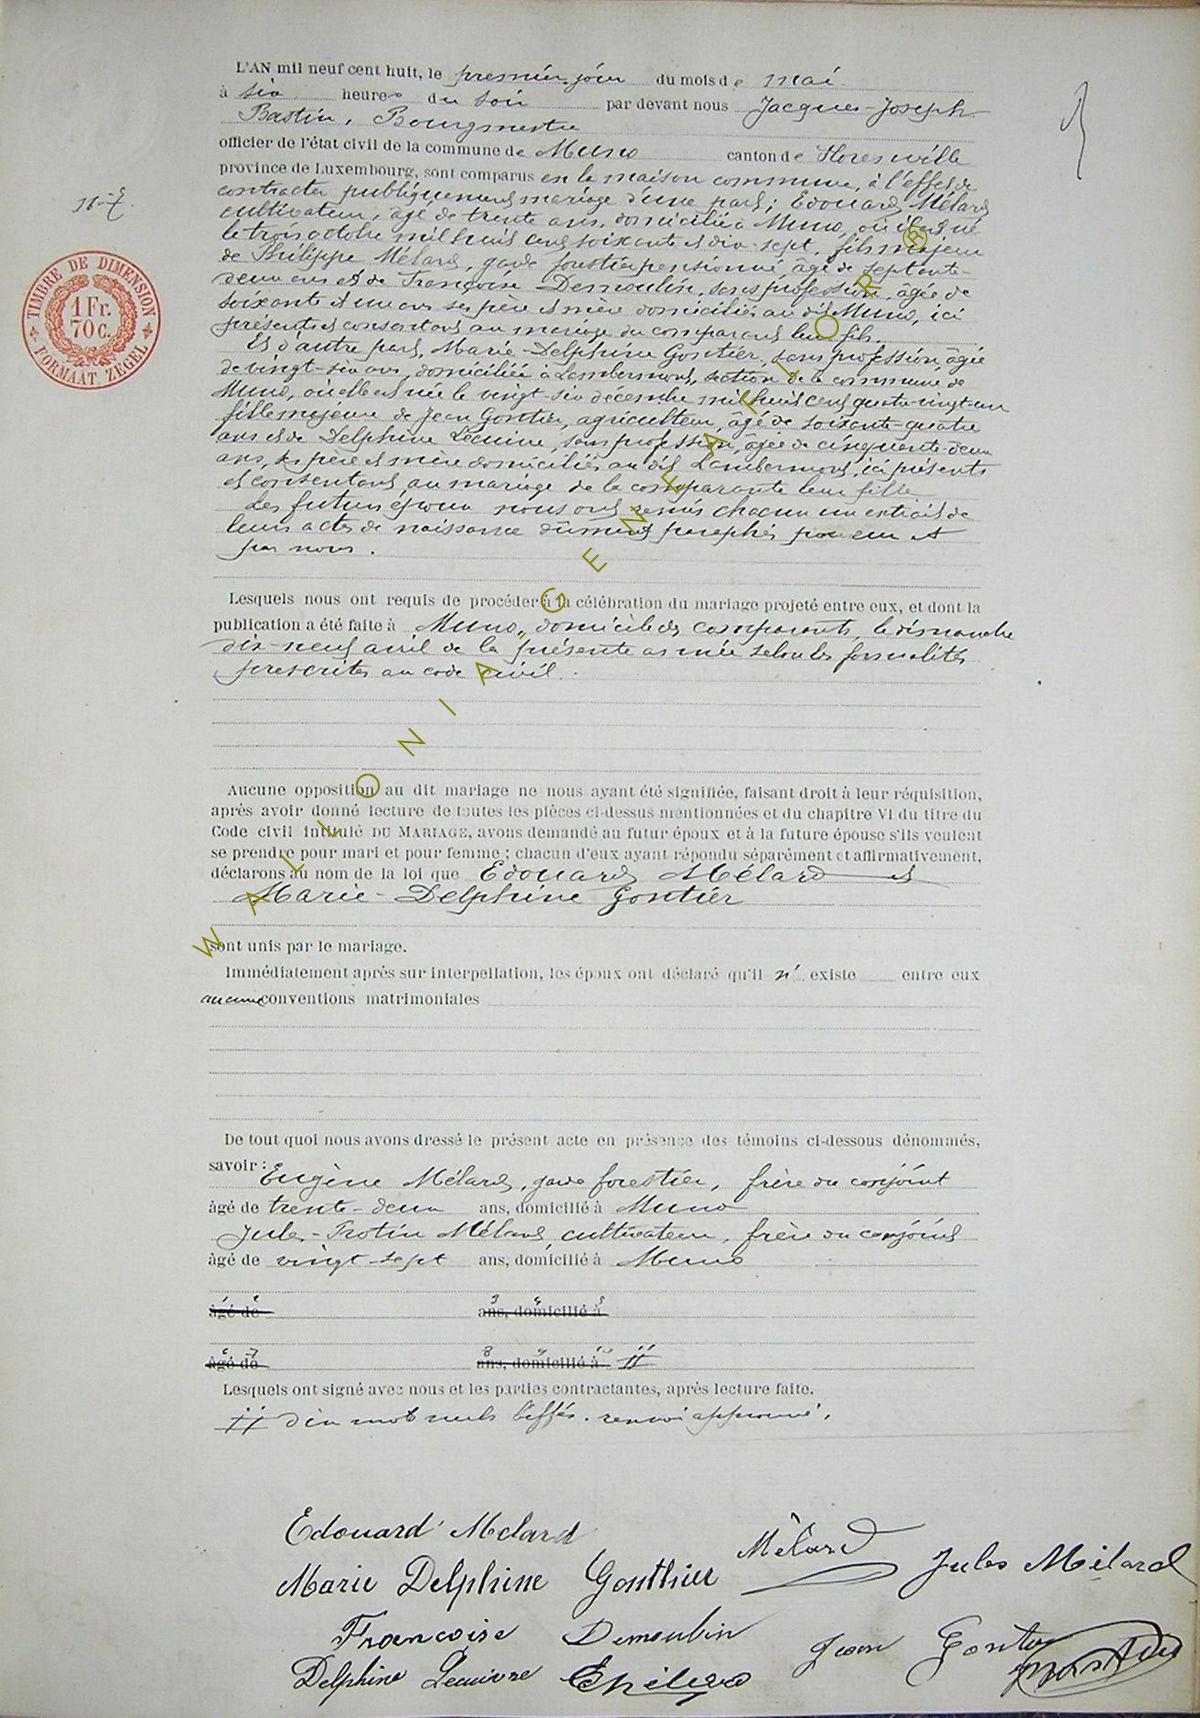 L'AN mil neuf cent huit, le premier jour du mois de mai
à six heures du soir par devant nous Jacques-Joseph
Bastin, Bourgmestre
officier de l'état civil de la commune de Muno canton de Florenville
province de Luxembourg, sont comparus en la maison commune, à l'effet de
contracter publiquement mariage d'une part; Edouard Mélard
cultivateur, âgé de trente ans, domicilié à Muno, où il est né
le trois octobre mil huit cent soixante et dix-sept, fils majeur
de Philippe Mélard, garde forestier pensionné, âgé de septante-
deux ans et de Françoise Desmoulin, sans profession, âgée de
soixante et un ans ses père et mère domiciliés au dit Muno, ici
présents et consentant au mariage du comparant leur fils.
Et d'autre part, Marie-Delphine Gontier, sans profession, âgée
de vingt-six ans, domiciliée à Lambermont, section de la commune de
Muno, où elle est née le vingt-six décembre mil huit cent quatre-vingt-un
fille majeure de Jean Gontier, agriculteur, âgé de soixante-quatre
ans et de Delphine Lecuivre, sans profession, âgée de cinquante-deux
ans, ses père et mère domiciliés au dit Lambermont, ici présents
et consentant au mariage de la comparante leur fille
Les futurs époux nous ont remis chacun un extrait de
leurs actes de naissance dûment paraphés par eux et
par nous.
11-7.
TIMBRE DE DIMENSION
1 Fr.
70 c.
FORMAAT ZEGEL
Lesquels nous ont requis de procéder à la célébration du mariage projeté entre eux, et dont la
publication a été faite à Muno, domicile des comparants, le dimanche
dix-neuf avril de la présente année selon les formalités
prescrites au code civil.
Aucune opposition au dit mariage ne nous ayant été signifiée, faisant droit à leur réquisition,
après avoir donné lecture de toutes les pièces ci-dessus mentionnées et du chapitre VI du titre du
Code civil intitulé DU MARIAGE, avons demandé au futur époux et à la future épouse s'ils veulent
se prendre pour mari et pour femme ; chacun d'eux ayant répondu séparément et affirmativement,
déclarons au nom de la loi que Edouard Mélard et
Marie-Delphine Gontier
sont unis par le mariage.
Immédiatement après sur interpellation, les époux ont déclaré qu'il n' existe entre eux
aucune conventions matrimoniales
De tout quoi nous avons dressé le présent acte en présence des témoins ci-dessous dénommés,
savoir : Eugène Mélard, garde forestier, frère du conjoint
âgé de trente-deux ans, domicilié à Muno
Jules-Protin Mélard cultivateur, frère du conjoint
âgé de vingt-sept ans, domicilié à Muno
âgé de ans, domicilié à
âgé de ans, domicilié à
Lesquels ont signé avec nous et les parties contractantes, après lecture faite.
dix mots nuls biffés. renvoi approuvé.
Edouard Mélard
Mélard
Jules Mélard
Marie Delphine Gonthier
Françoise Demoulin
Jean Gontier
Delphine Lecuivre
WALLONIA GENEAFLOR ®